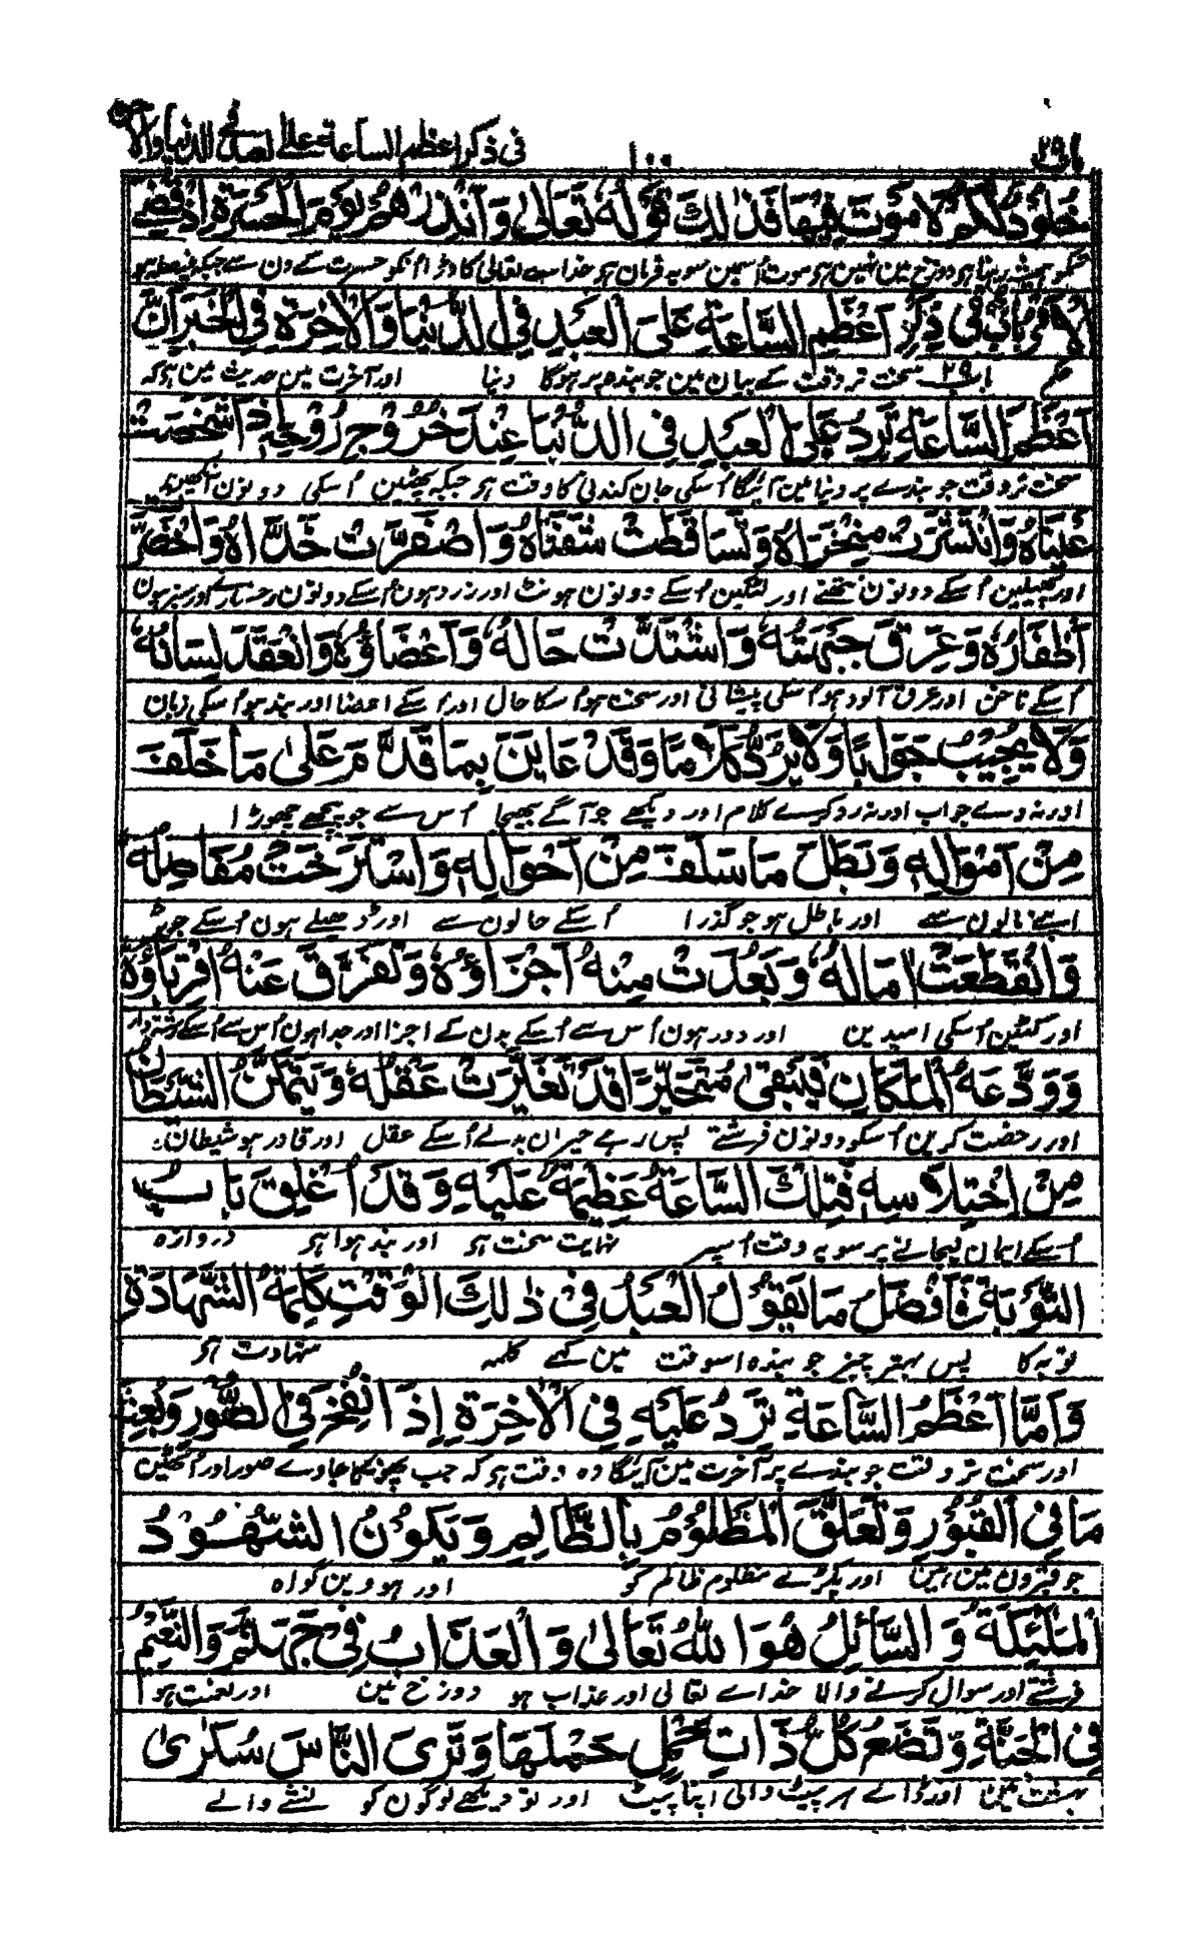 باب ٢٩ ١٠٠ فی ذکر اعظم الساعة علی العبد فی الدنیا والآخرة
خُلُوْدٌ لَكُمْ لَا مَوْتَ فِيْهَا فَذٰلِكَ قَوْلُهٗ تَعَالٰى وَاَنْذِرْهُمْ يَوْمَ الْحَسْرَةِ اِذْ قُضِيَ
تمکو ہمیشہ رہنا ہو دوزخ مین نہین ہو موت اُسمین سو یہ فرمان ہو خداے تعالی کا وڈرا انکو حسرت کے دن سے جبکہ فیصلہ ہو
الْاَمْرُ بَابٌ فِيْ ذِكْرِ اَعْظَمِ السَّاعَةِ عَلَى الْعَبْدِ فِي الدُّنْيَا وَالْاٰخِرَةِ فِي الْخَبَرِ اَنَّ
حکم باب ٢٩ سخت تر وقت کے بیان مین جو بندہ پر ہوگا دنیا اور آخرت مین حدیث مین ہو کہ
اَعْظَمَ السَّاعَةِ تَرِدُ عَلَى الْعَبْدِ فِي الدُّنْيَا عِنْدَ خُرُوْجِ رُوْحِهٖ اِذَا شَخَصَتْ
سخت تر وقت جو بندے پر دنیا مین آئیگا اُسکی جان کندنی کا وقت ہو جبکہ پھٹین اُسکی دونون آنکھین
عَيْنَاهُ وَانْتَشَرَتْ مِنْخَرَاهُ وَتَسَاقَطَتْ شَفَتَاهُ وَاصْفَرَّتْ خَدَّاهُ وَاخْضَرَّ
اور پھیلین اُسکے دونون نتھنے اور لٹکین اُسکے دونون ہونٹ اور زرد ہون اُسکے دونون رخسارے اور سبز ہون
اَظْفَارُهٗ وَعِرَقَ جَبْهَتُهٗ وَاشْتَدَّتْ حَالُهٗ وَاَعْضَاؤُهٗ وَانْعَقَدَ لِسَانُهٗ
اُسکے ناخن اور عرق آلود ہو اُسکی پیشانی اور سخت ہو اُسکا حال اور اُسکے اعضا اور بند ہو اُسکی زبان
وَلَا يُجِيْبُ جَوَابًا وَلَا يَرُدُّ كَلَامًا وَقَدْ عَايَنَ بِمَا قَدَّمَ عَلٰى مَا خَلَفَ
اور نہ دے جواب اور نہ رد کرے کلام اور دیکھے جو آگے بھیجا اُس سے جو پیچھے چھوڑا
مِنْ اَمْوَالِهٖ وَبَطَلَ مَا سَلَفَ مِنْ اَحْوَالِهٖ وَاسْتَرْخَتْ مَفَاصِلُهٗ
اپنے مالون سے اور باطل ہو جو گذرا اُسکے حالون سے اور ڈھیلے ہون اُسکے جوڑ
وَانْقَطَعَتْ اٰمَالُهٗ وَبَعُدَتْ مِنْهُ اَجْزَاؤُهٗ وَتَفَرَّقَ عَنْهُ اَقْرِبَاؤُهٗ
اور کٹین اُسکی امیدین اور دور ہون اُس سے اُسکے بدن کے اجزا اور جدا ہون اُس سے اُسکے رشتہ دار
وَوَدَّعَهُ الْمَلَكَانِ فَيَبْقٰى مُتَحَيِّرًا قَدْ تَغَيَّرَتْ عَقْلُهٗ وَيَتَمَكَّنُ الشَّيْطَانُ
اور رخصت کرین اُسکو دونون فرشتے پس رہے حیران بدلے اُسکے عقل اور قادر ہو شیطان
مِنْ اِخْتِلَاسِهٖ فَتِلْكَ السَّاعَةُ عَظِيْمَةٌ عَلَيْهِ وَقَدْ اُغْلِقَ بَابُ
اُسکے ایمان لیجانے پر سو یہ وقت اُسپر نہایت سخت ہو اور بند ہوا ہو دروازہ
التَّوْبَةِ فَاَفْضَلُ مَا يَقُوْلُ الْعَبْدُ فِيْ ذٰلِكَ الْوَقْتِ كَلِمَةُ الشَّهَادَةِ
توبہ کا پس بہتر چیز جو بندہ اسوقت مین کہے کلمہ شہادت ہو
وَاَمَّا اَعْظَمُ السَّاعَةِ تَرِدُ عَلَيْهِ فِي الْاٰخِرَةِ اِذَا نُفِخَ فِي الصُّوْرِ وَبُعِثَ
اور سخت تر وقت جو بندے پر آخرت مین آئیگا وہ وقت ہو کہ جب پھونکا جاوے صور اور اُٹھین
مَا فِي الْقُبُوْرِ وَتَعَلَّقَ الْمَظْلُوْمُ بِالظَّالِمِ وَيَكُوْنُ الشُّهُوْدُ
جو قبرون مین ہین اور پکڑے مظلوم ظالم کو اور ہووین گواہ
الْمَلٰئِكَةُ وَالسَّائِلُ هُوَ اللّٰهُ تَعَالٰى وَالْعَذَابُ فِيْ جَهَنَّمَ وَالنَّعِيْمُ
فرشتے اور سوال کرنے والا خداے تعالی اور عذاب ہو دوزخ مین اور نعمت ہو
فِي الْجَنَّةِ وَتَضَعُ كُلُّ ذَاتِ حَمْلٍ حَمْلَهَا وَتَرَى النَّاسَ سُكَرٰى
بہشت مین اور ڈالے ہر پیٹ والی اپنا پیٹ اور تو دیکھے لوگون کو نشے والے